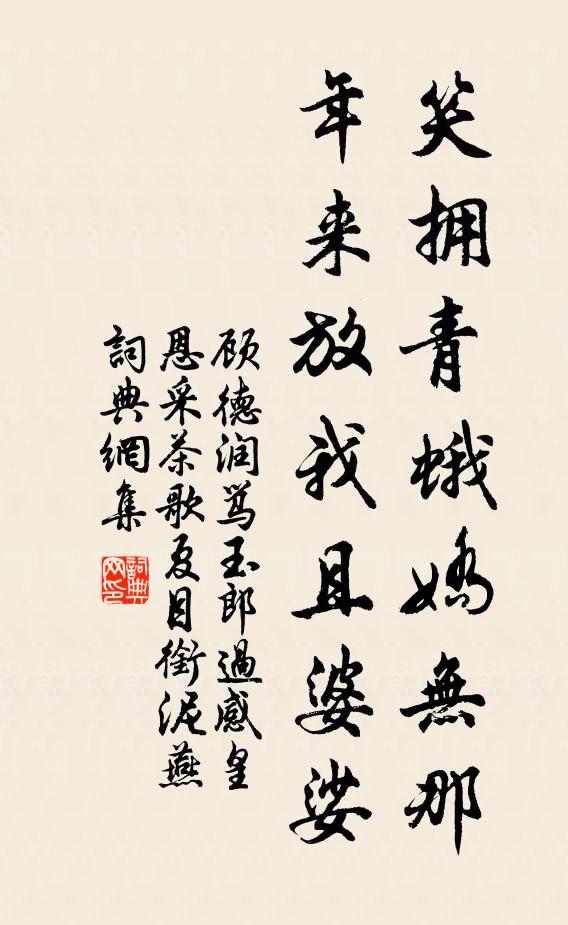 笑拥青蛾娇無那
年来放我且婆娑
顾德润骂玉郎過感皇
恩采茶歌夏目銜泥燕
詞典網集
詞典
网印